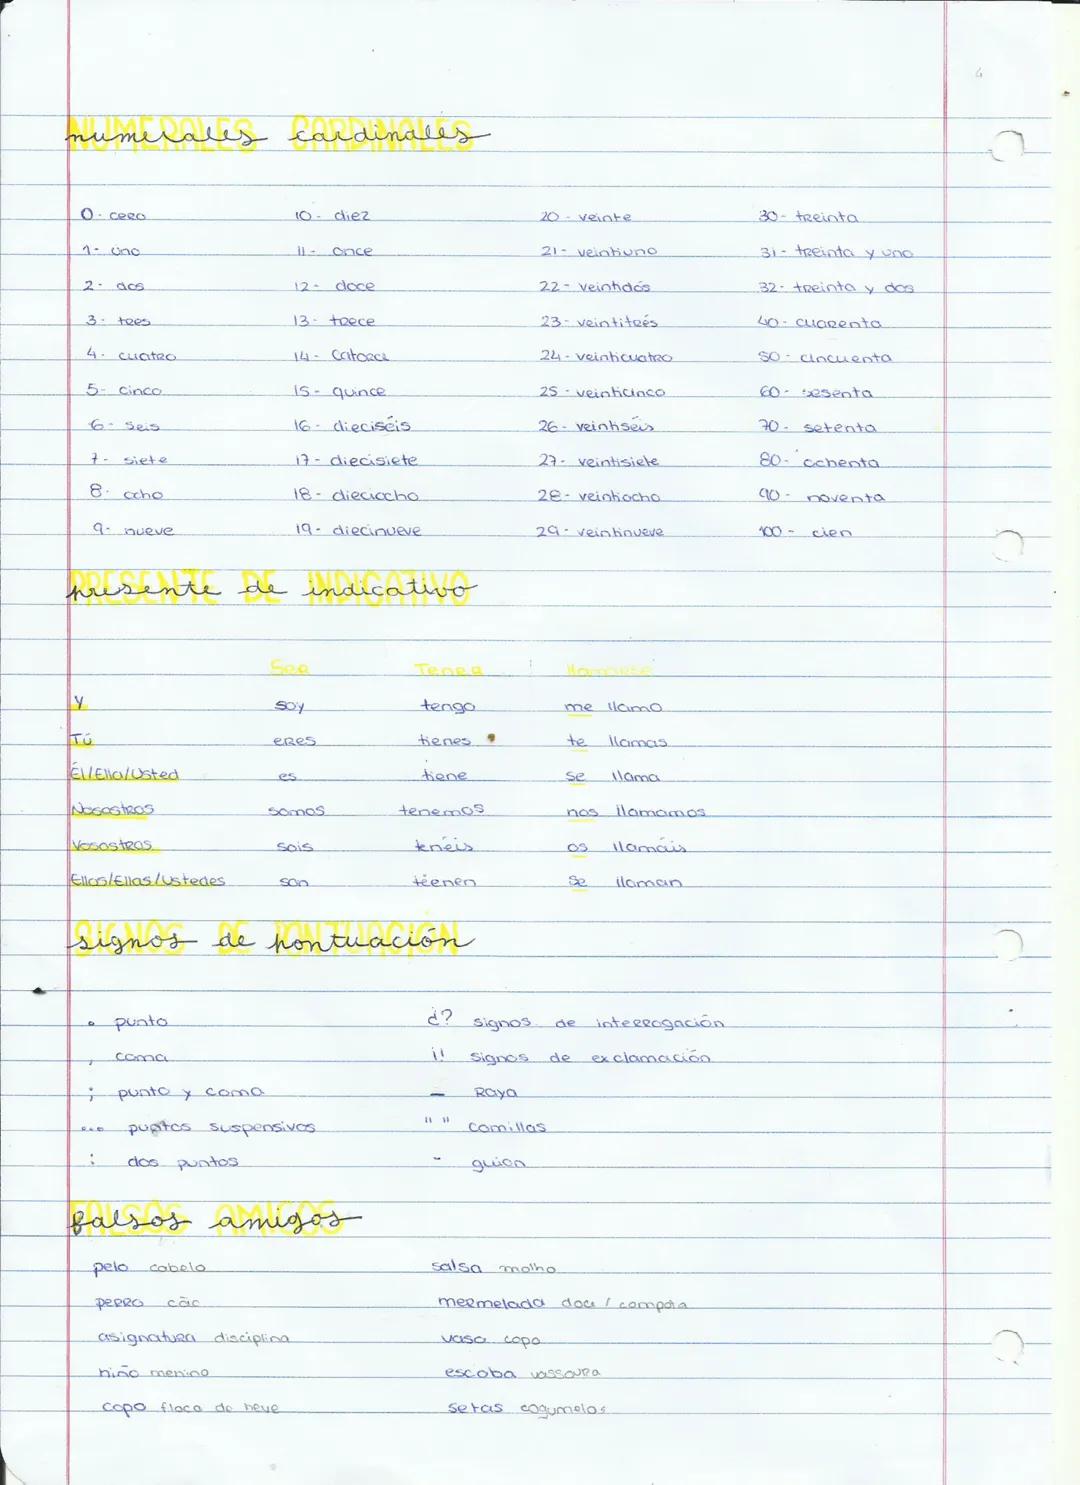 4
numerales cardinales
0- cero 10- diez 20- veinte 30- treinta
1- uno 11- once 21- veintiuno 31- treinta y uno
2- dos 12- doce 22- veintidós 32- treinta y dos
3- tres 13- trece 23- veintitrés 40- cuarenta
4- cuatro 14- catorce 24- veinticuatro 50- cincuenta
5- cinco 15- quince 25- veinticinco 60- sesenta
6- seis 16- dieciséis 26- veintiséis 70- setenta
7- siete 17- diecisiete 27- veintisiete 80- ochenta
8- ocho 18- dieciocho 28- veintiocho 90- noventa
9- nueve 19- diecinueve 29- veintinueve 100- cien
presente de indicativo
Ser Tener llamarse
Y soy tengo me llamo
Tú eres tienes te llamas
Él/Ella/Usted es tiene se llama
Nosostros somos tenemos nos llamamos
Vosostros sois tenéis os llamáis
Ellos/Ellas/Ustedes son tienen se llaman
signos de pontuación
. punto ¿? signos de interrogación
, coma ¡! signos de exclamación
; punto y coma — Raya
... puntos suspensivos " " comillas
: dos puntos - guion
falsos amigos
pelo cabelo salsa molho
perro cão mermelada doce / compota
asignatura disciplina vaso copo
niño menino escoba vassoura
copo floco de neve setas cogumelos